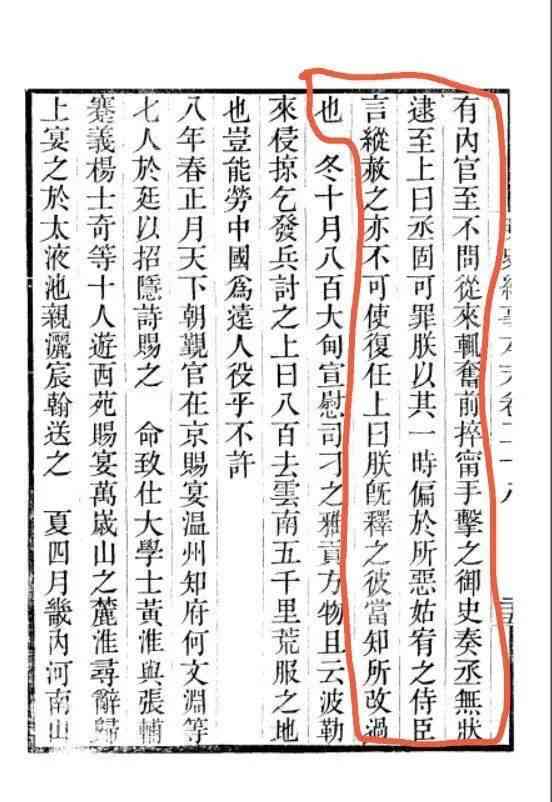 有內官至不問從來輒奮前捽甯手擊之御史奏丞無狀
逮至上曰丞固可罪朕以其一時偏於所惡姑宥之侍臣
言縱赦之亦不可使復任上曰朕旣釋之彼當知所改過
也　冬十月八百大甸宣慰司刁之雅貢方物且云波勒
來侵掠乞發兵討之上曰八百去雲南五千里荒服之地
也豈能勞中國爲遠人役乎不許
八年春正月天下朝觀官在京賜宴温州知府何文淵等
七人於廷以招隱詩賜之　命致仕大學士黃淮與張輔
蹇義楊士奇等十人遊西苑賜宴萬歲山之麓淮尋辭歸
上宴之於太液池親灑宸翰送之　夏四月畿內河南山